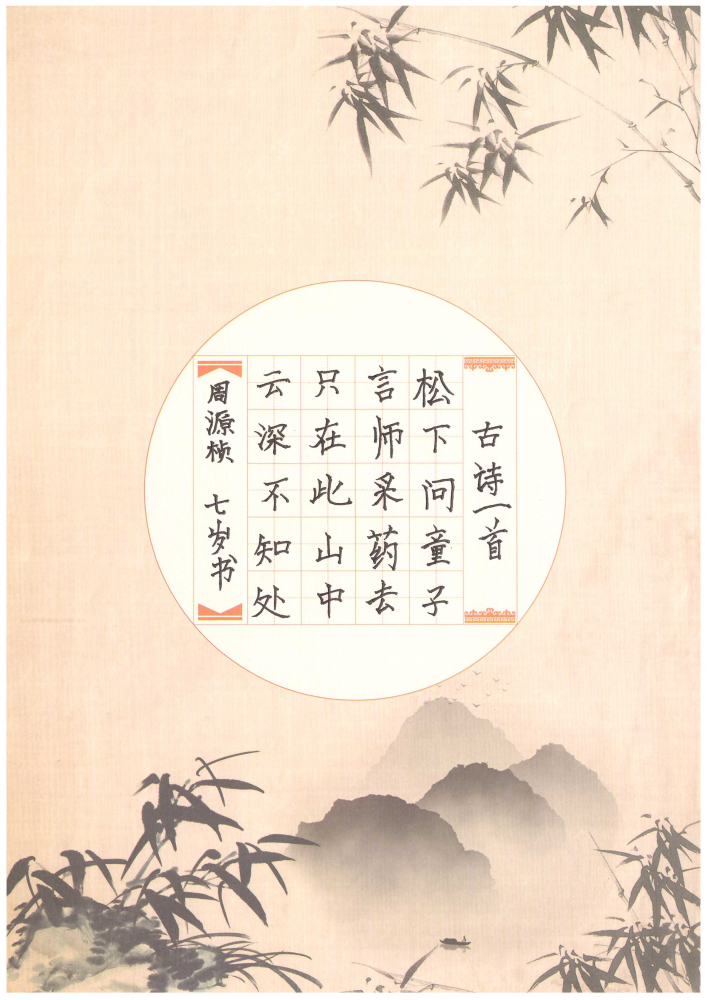 古诗一首
松下问童子
言师采药去
只在此山中
云深不知处
周源桢 七岁书